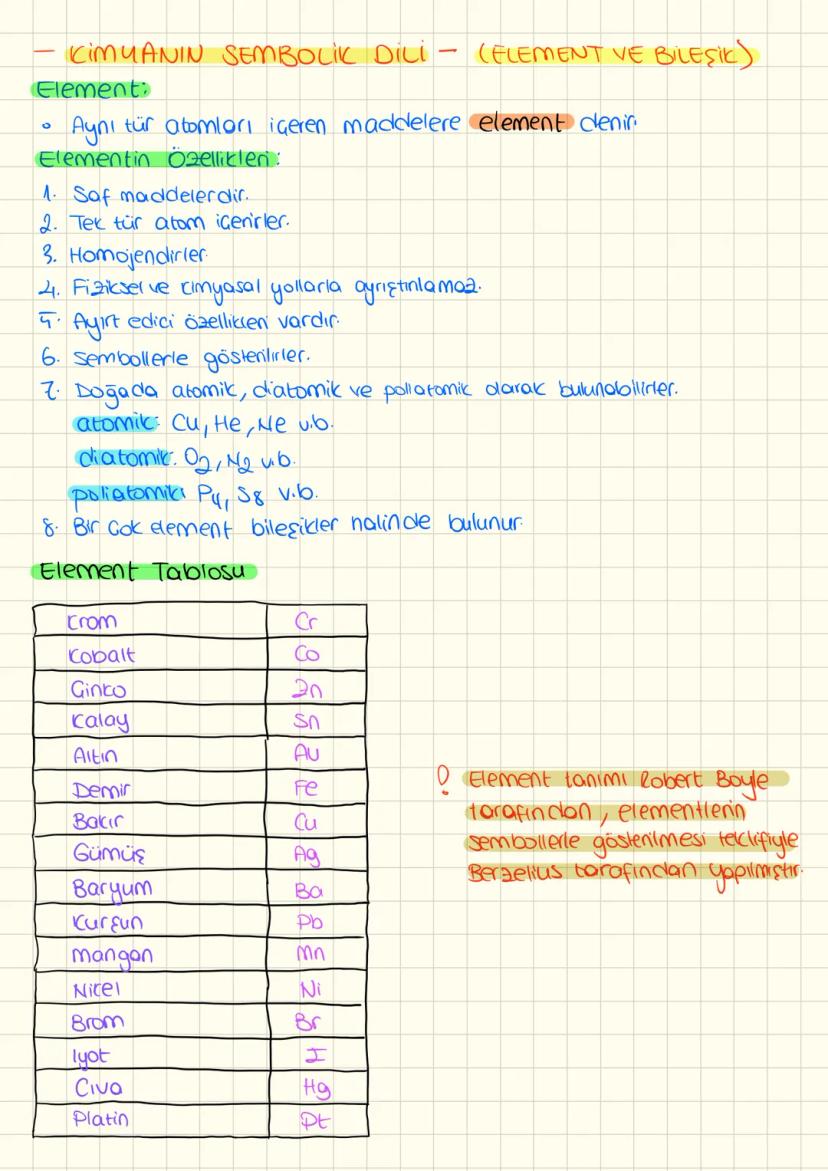 - KİMYANIN SEMBOLİK DİLİ - (ELEMENT VE BİLEŞİK)
Element:
• Aynı tür atomları içeren maddelere element denir.
Elementin Özellikleri:
1. Saf maddelerdir.
2. Tek tür atom içerirler.
3. Homojendirler.
4. Fiziksel ve kimyasal yollarla ayrıştırılamaz.
5. Ayırt edici özellikleri vardır.
6. Sembollerle gösterilirler.
7. Doğada atomik, diatomik ve poliatomik olarak bulunabilirler.
atomik: Cu, He, Ne v.b.
diatomik: O2, N2 v.b.
poliatomik: P4, S8 v.b.
8. Bir çok element bileşikler halinde bulunur.
Element Tablosu
Krom Cr
Kobalt Co
Çinko Zn
Kalay Sn
Altın Au
Demir Fe
Bakır Cu
Gümüş Ag
Baryum Ba
Kurşun Pb
Mangan Mn
Nikel Ni
Brom Br
İyot I
Civa Hg
Platin Pt
! Element tanımı Robert Boyle
tarafından, elementlerin
sembollerle gösterilmesi teklifiyle
Berzelius tarafından yapılmıştır.